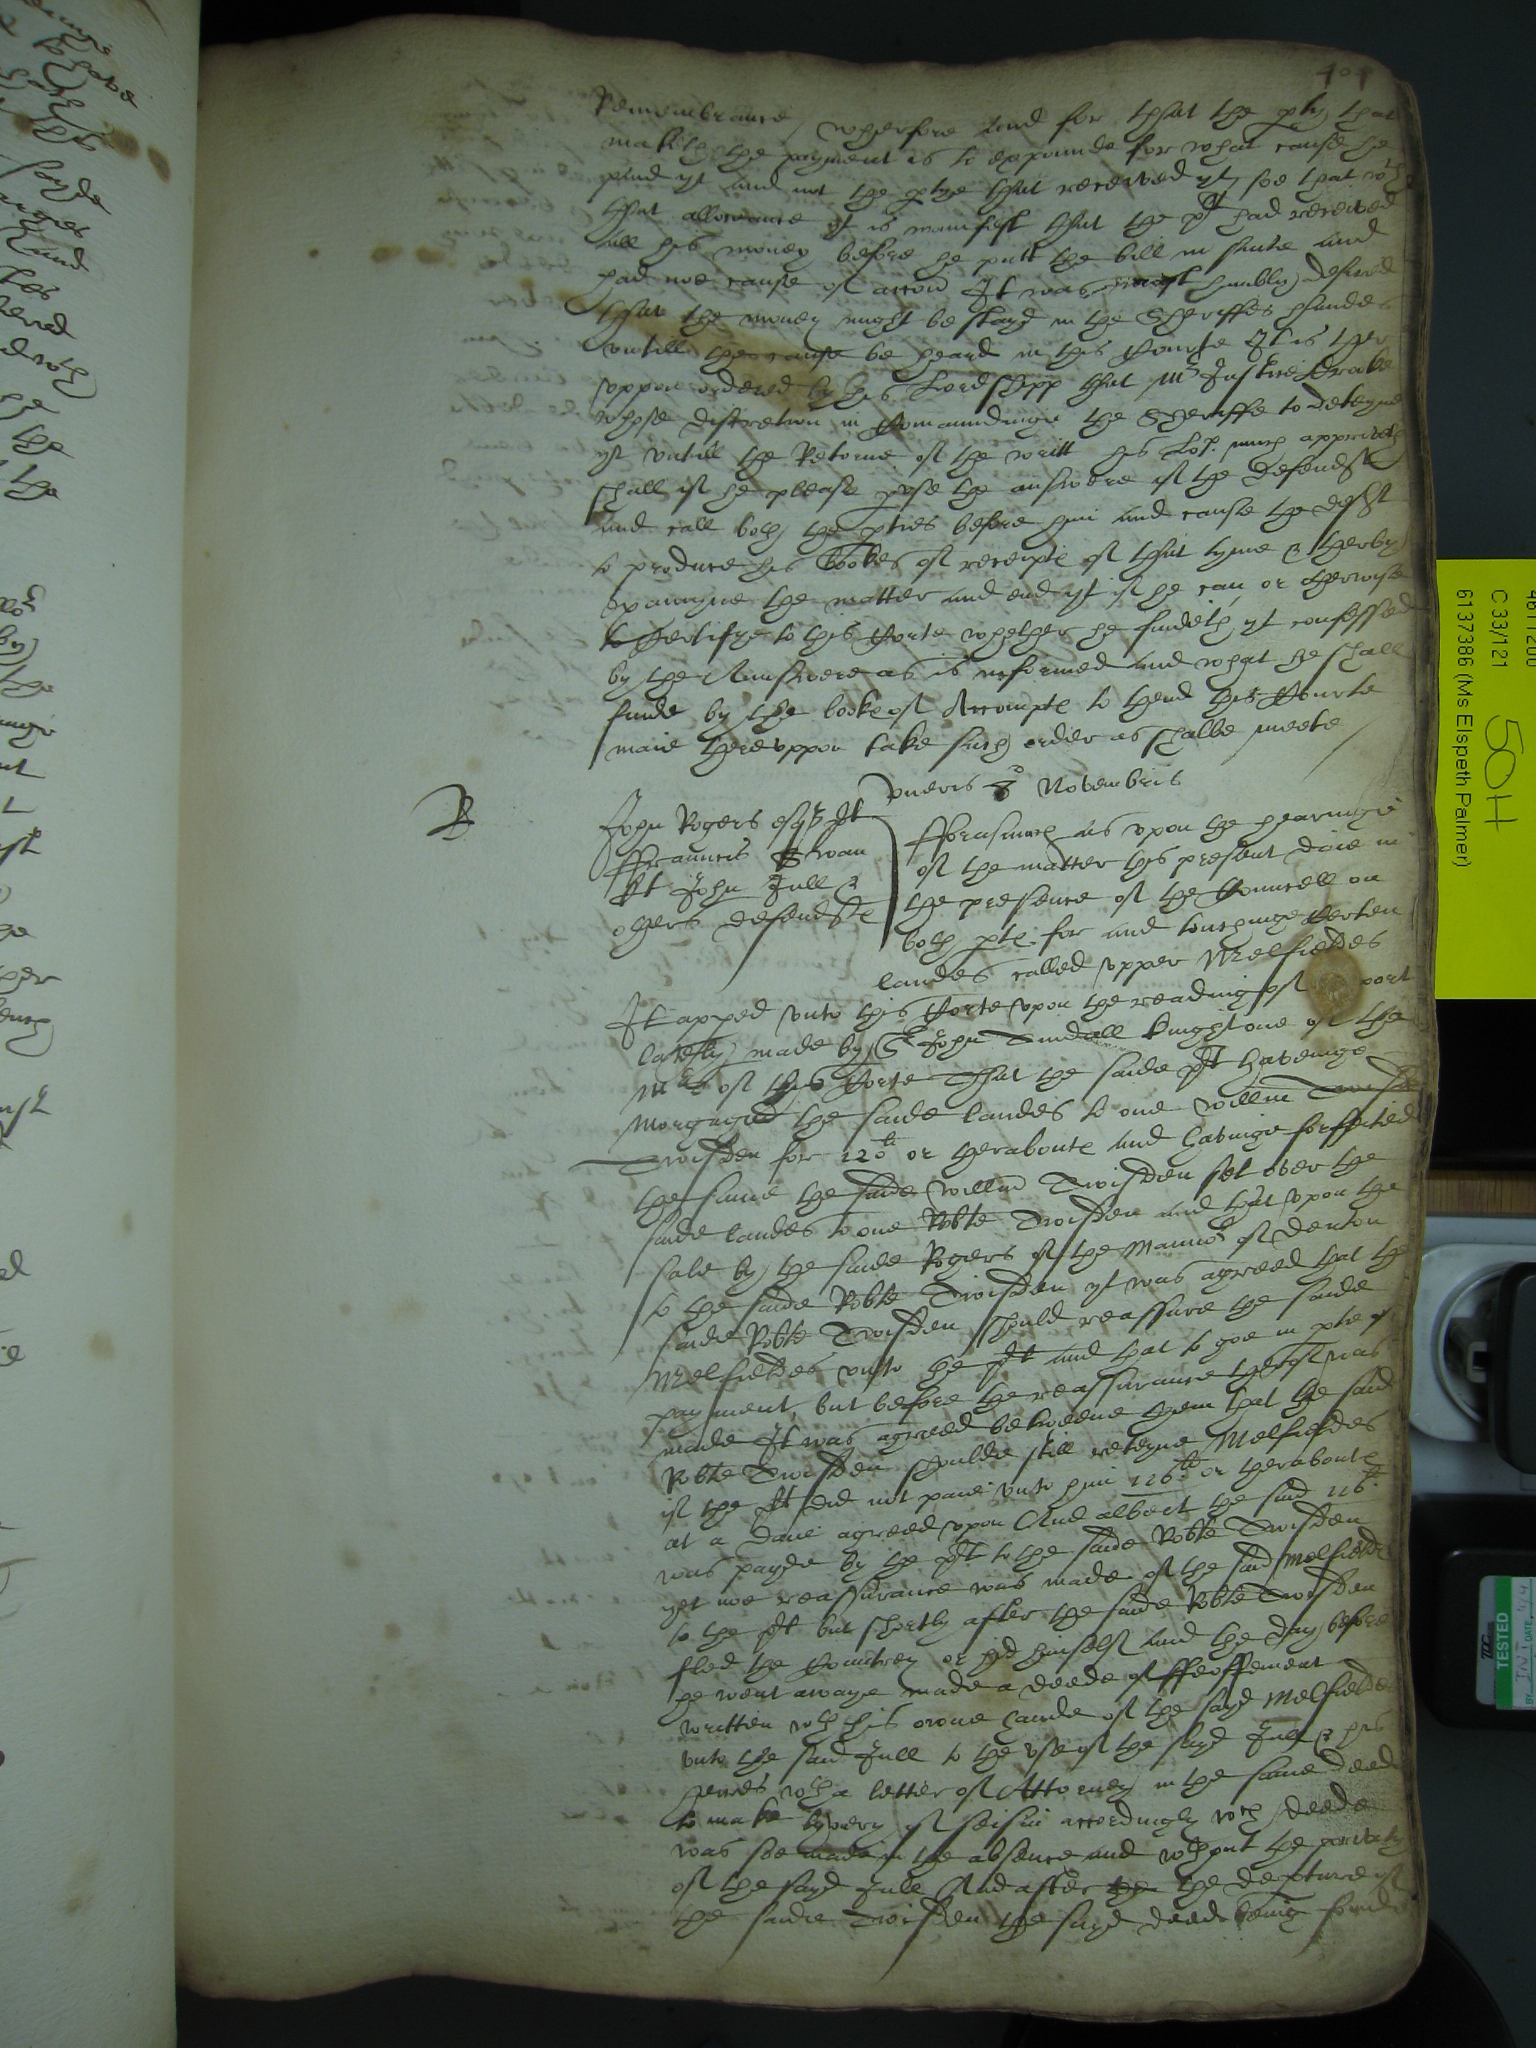 404
Remembrance, wherfore and for that the pty that
maketh the payment is to expounde for what cause he
paid yt and not the ptye that received yt, soe that wth
that allowance yt is manifest that the plt had received
all his money before he putt the bill in suite and
had noe cause of accon It was most humbly desired
that the money might be stayd in the Sheriffes handes
untill the cause be heard in this Courte It is ther
uppon ordered by his Lordshipp that Mr Justice
whose discretion in Comaundinge the Sheriffe to deteyne
yt untill the Retorne of the writt his Lop. much approveth
shall if he please pvse the answere of the defendte
and call both the pties before him and cause the deft
to produce his bookes of receipte of that tyme & therby
examyne the matter and end yt if he can or otherwise
to Certifye to this Corte whether he findeth yt confessed
by the Aunswere as is informed and what he shall
finde by the booke of Accompte to thend this Courte
maie thereuppon take such order as shalbe meete
Veneris 8o Novembris
R
John Rogers esqr plt
ffrauncis Swan
John Jull &
others defendte
fforasmuch as upon the hearinge
of the matter this present daie in
the presence of the Councell on
both pte for and touchinge Certen
landes called upper Melfieldes
It apped unto this Corte upon the reading of port
lately made by Sr John Tindall knight one of the
Mrs of this Corte That the saide plt haveinge
Morgaged the saide landes to one Willm
Twisden for 120li or theraboute and havinge forffeited
the same the saide Willm Twisden set over the
saide landes to one Robte Twisden and that upon the
sale by the saide Rogers of the Mannor of Denton
to the saide Robte Twisden yt was agreed that the
saide Robte Twisden should reassure the saide
Melfieldes unto the plt and that to goe in pte of
payment, but before the reassurance therof was
made It was agreed betweene them that the said
Robte Twisden shoulde still reteyne Melfieldes
if the plt did not paie unto him 126li or theraboute
at a daie agreed upon And albeit the said 126li
was payde by the plt to the saide Robte Twisden
yet noe reassurance was made of the said Melfieldes
to the plt but shortly after the saide Robte Twisden
fled the Countrey or hyd himself and the day before
he went awaye made a deede of ffeoffement
written wth his owne hande of the sayd Melfieldes
unto the said Jull to the use of the sayd Jull & his
heires wth a letter of Attorney in the same deed
to make lyvery of seisin accordingly wch deede
was soe made in the absence and wthout the privity
of the sayd Jull And after the the depture of
the saide Twisden the sayd deed being founde
C 33/121
6137386 (Ms Elspeth Palmer)
504
TESTED